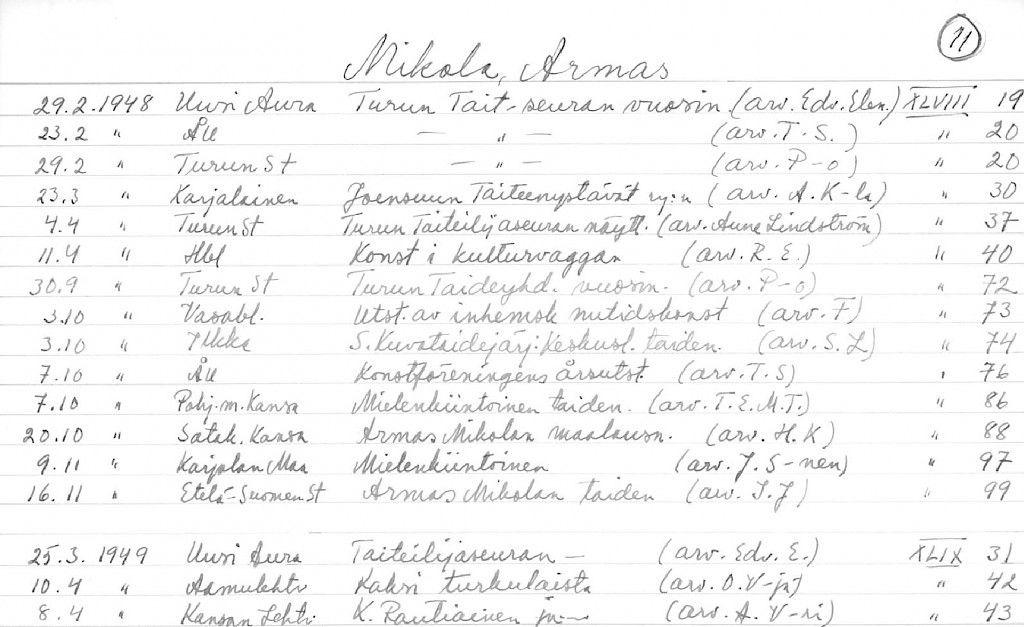 11
Mikola, Armas
29.2.1948 Uusi Aura Turun Tait-seuran vuosin (arv. Edv. Elen.) XLVIII 19
23.2 " ÅU — " — (arv. T. S.) " 20
29.2 " Turun St — " — (arv. P-o) " 20
23.3 " Karjalainen Joensuun Taiteenystävät ry:n (arv. A. K-la) " 30
4.4 " Turun St Turun Taiteilijaseuran näytt. (arv. Aune Lindström) " 37
11.4 " Hbl Konst i kulturvaggan (arv. R. E.) " 40
30.9 " Turun St Turun Taideyhd. vuosin. (arv. P-o) " 72
3.10 " Vasabl. Utst. av inhemsk nutidskonst (arv. F) " 73
3.10 " Ilkka S. Kuvataidejärj. Keskusl. taiden. (arv. S. L) " 74
7.10 " ÅU Konstföreningens årsutst. (arv. T. S) " 76
7.10 " Pohj.m. Kansa Mielenkiintoinen taiden. (arv. T. E. M. T.) " 86
20.10 " Satak. Kansa Armas Mikolan maalausn. (arv. H. K) " 88
9.11 " Karjalan Maa Mielenkiintoinen (arv. J. S-nen) " 97
16.11 " Etelä-Suomen St Armas Mikolan taiden (arv. I. J) " 99
25.3. 1949 Uusi Aura Taiteilijaseuran — (arv. Edv. E.) XLIX 31
10.4 " Aamulehti Kaksi turkulaista (arv. O. V-ja) " 42
8.4 " Kansan Lehti. K. Rautiainen ja — (arv. A. V-ri) " 43